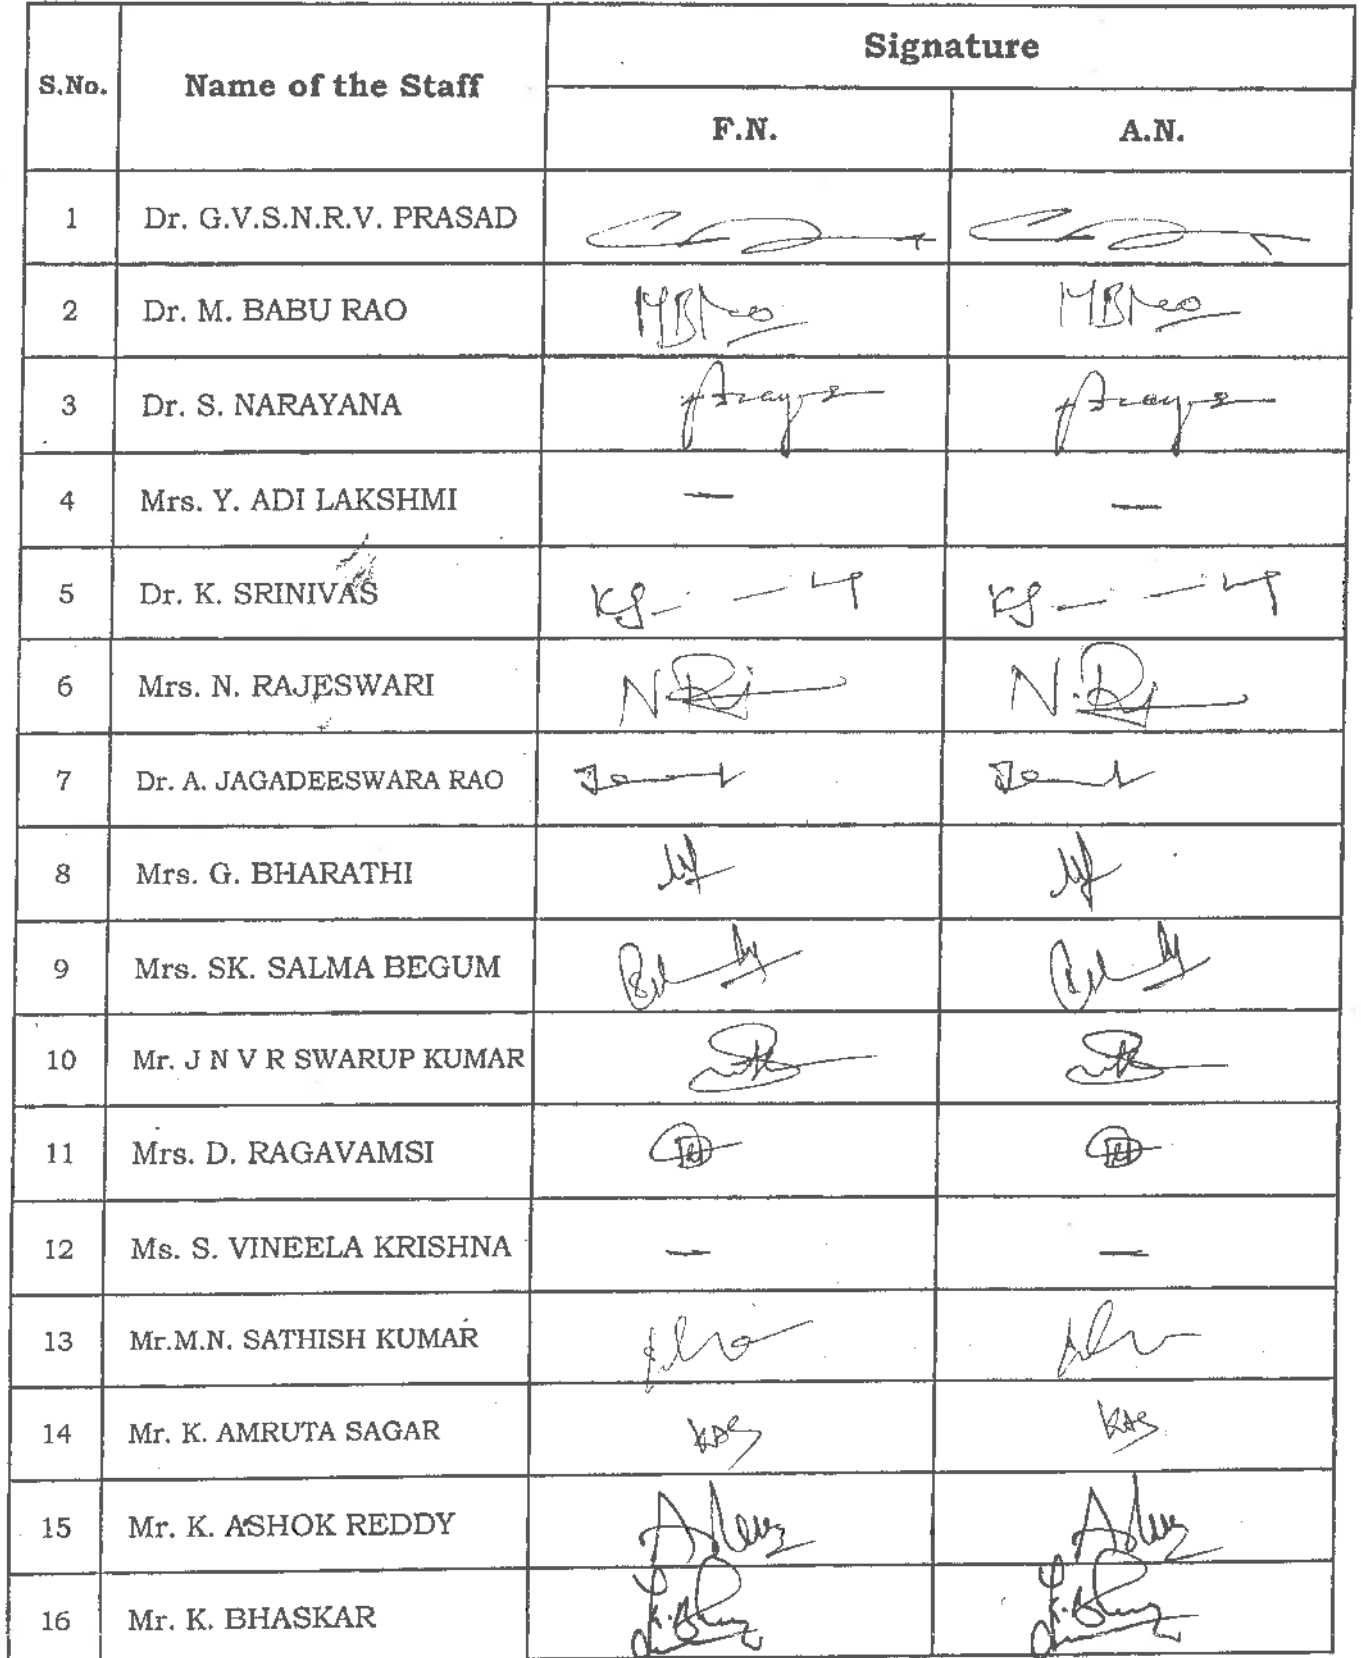 Signature
S.No. Name of the Staff
F.N. A.N.
1 Dr. G.V.S.N.R.V. PRASAD
2 Dr. M. BABU RAO
3 Dr. S. NARAYANA
4 Mrs. Y. ADI LAKSHMI — —
5 Dr. K. SRINIVAS
6 Mrs. N. RAJESWARI
7 Dr. A. JAGADEESWARA RAO
8 Mrs. G. BHARATHI
9 Mrs. SK. SALMA BEGUM
10 Mr. J N V R SWARUP KUMAR
11 Mrs. D. RAGAVAMSI
12 Ms. S. VINEELA KRISHNA — —
13 Mr.M.N. SATHISH KUMAR
14 Mr. K. AMRUTA SAGAR KAS KAS
15 Mr. K. ASHOK REDDY
16 Mr. K. BHASKAR